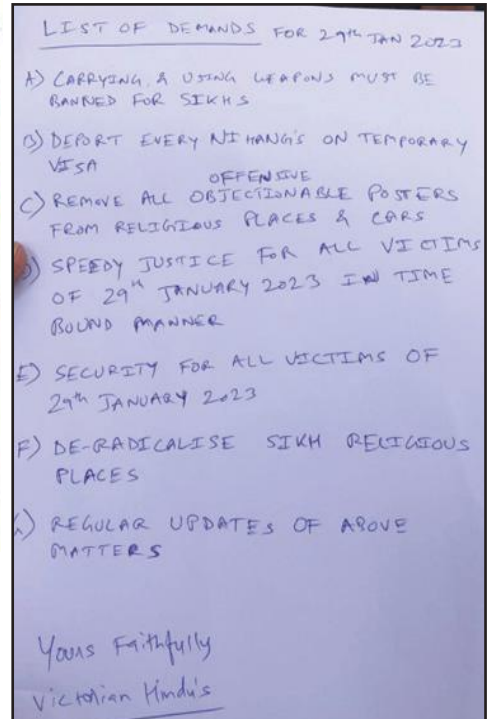 LIST OF DEMANDS FOR 29th JAN 2023
A) CARRYING & USING WEAPONS MUST BE
BANNED FOR SIKHS
B) DEPORT EVERY NIHANG'S ON TEMPORARY
VISA
OFFENSIVE
C) REMOVE ALL OBJECTIONABLE POSTERS
FROM RELIGIOUS PLACES & CARS
D) SPEEDY JUSTICE FOR ALL VICTIMS
OF 29th JANUARY 2023 IN TIME
BOUND MANNER
E) SECURITY FOR ALL VICTIMS OF
29th JANUARY 2023
F) DE-RADICALISE SIKH RELIGIOUS
PLACES
G) REGULAR UPDATES OF ABOVE
MATTERS
Yours Faithfully
Victorian Hindu's